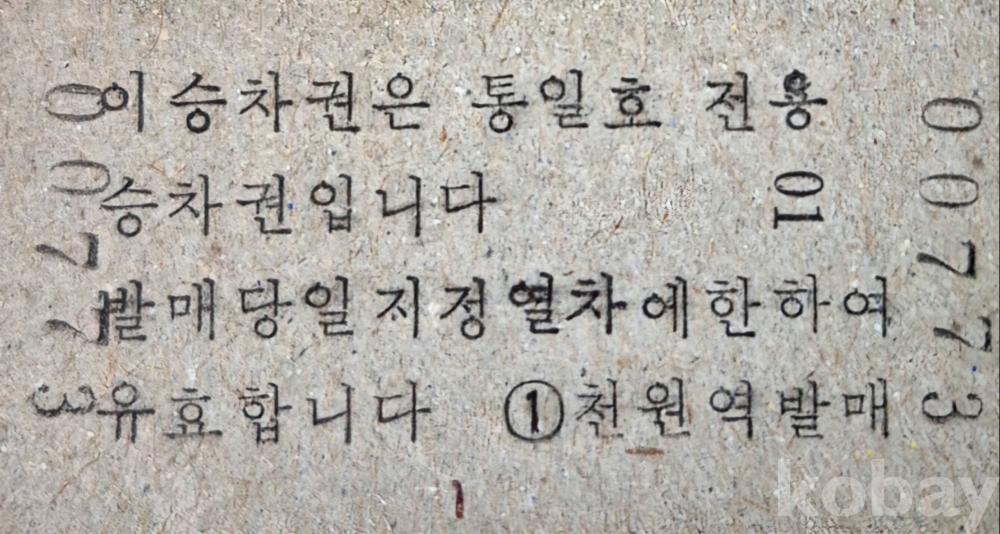 이 승차권은 통일호 전용
승차권입니다 01
발매당일 지정 열차에한하여
유효합니다 ①천원역발매
00773
00773
kobay